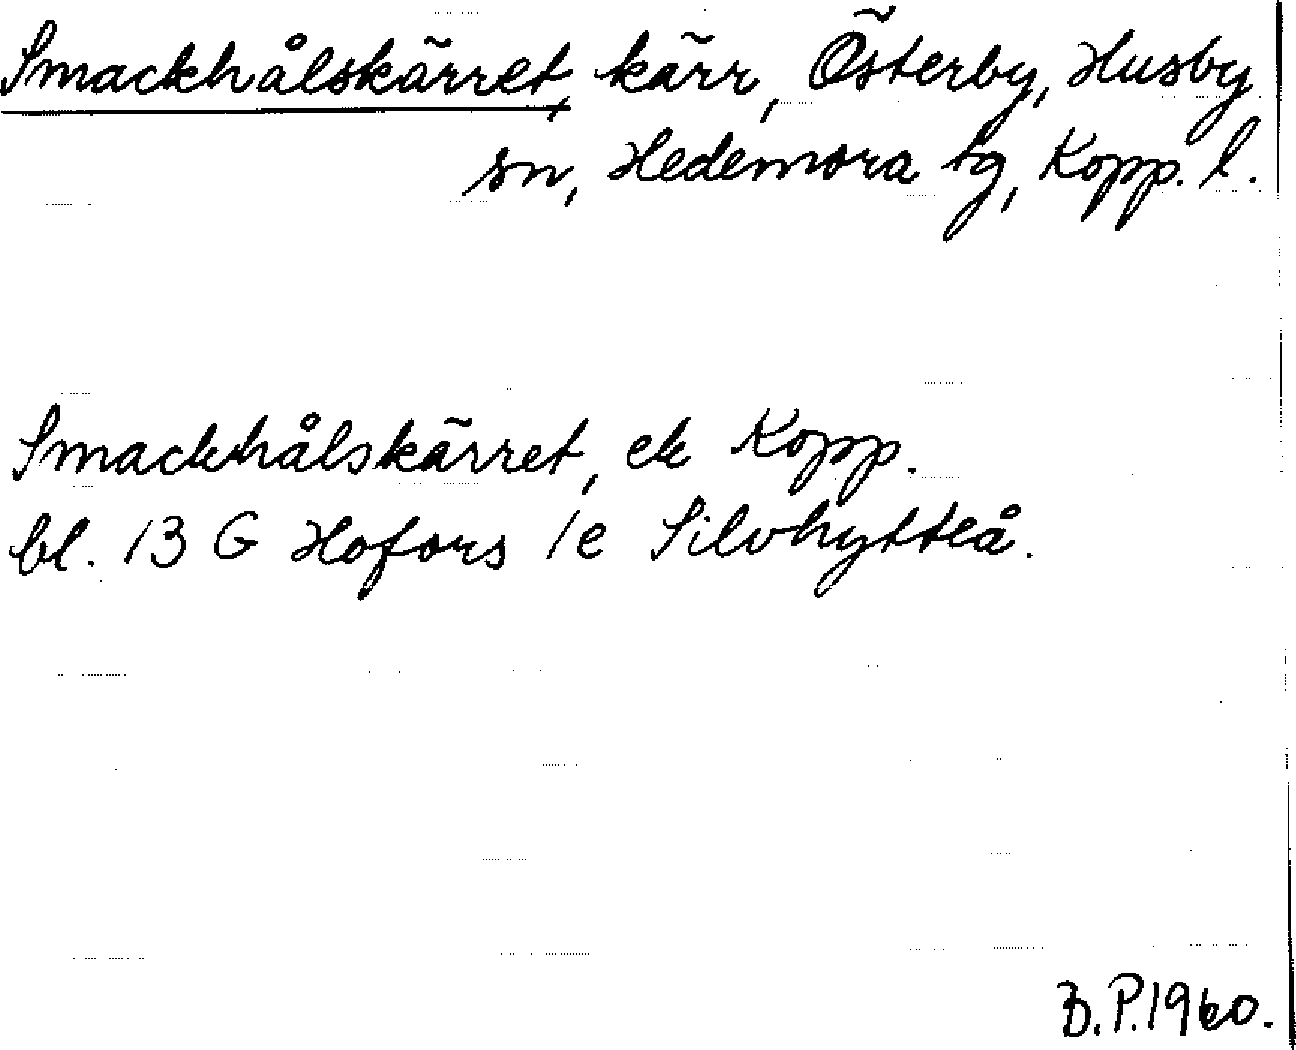 Smackhålskärret, kärr, Österby, Husby
sn, Hedemora tg, Kopp. l.
Smackhålskärret, ek Kopp.
bl. 13 G Hofors 1e Silvhytteå.
B.P.1960.